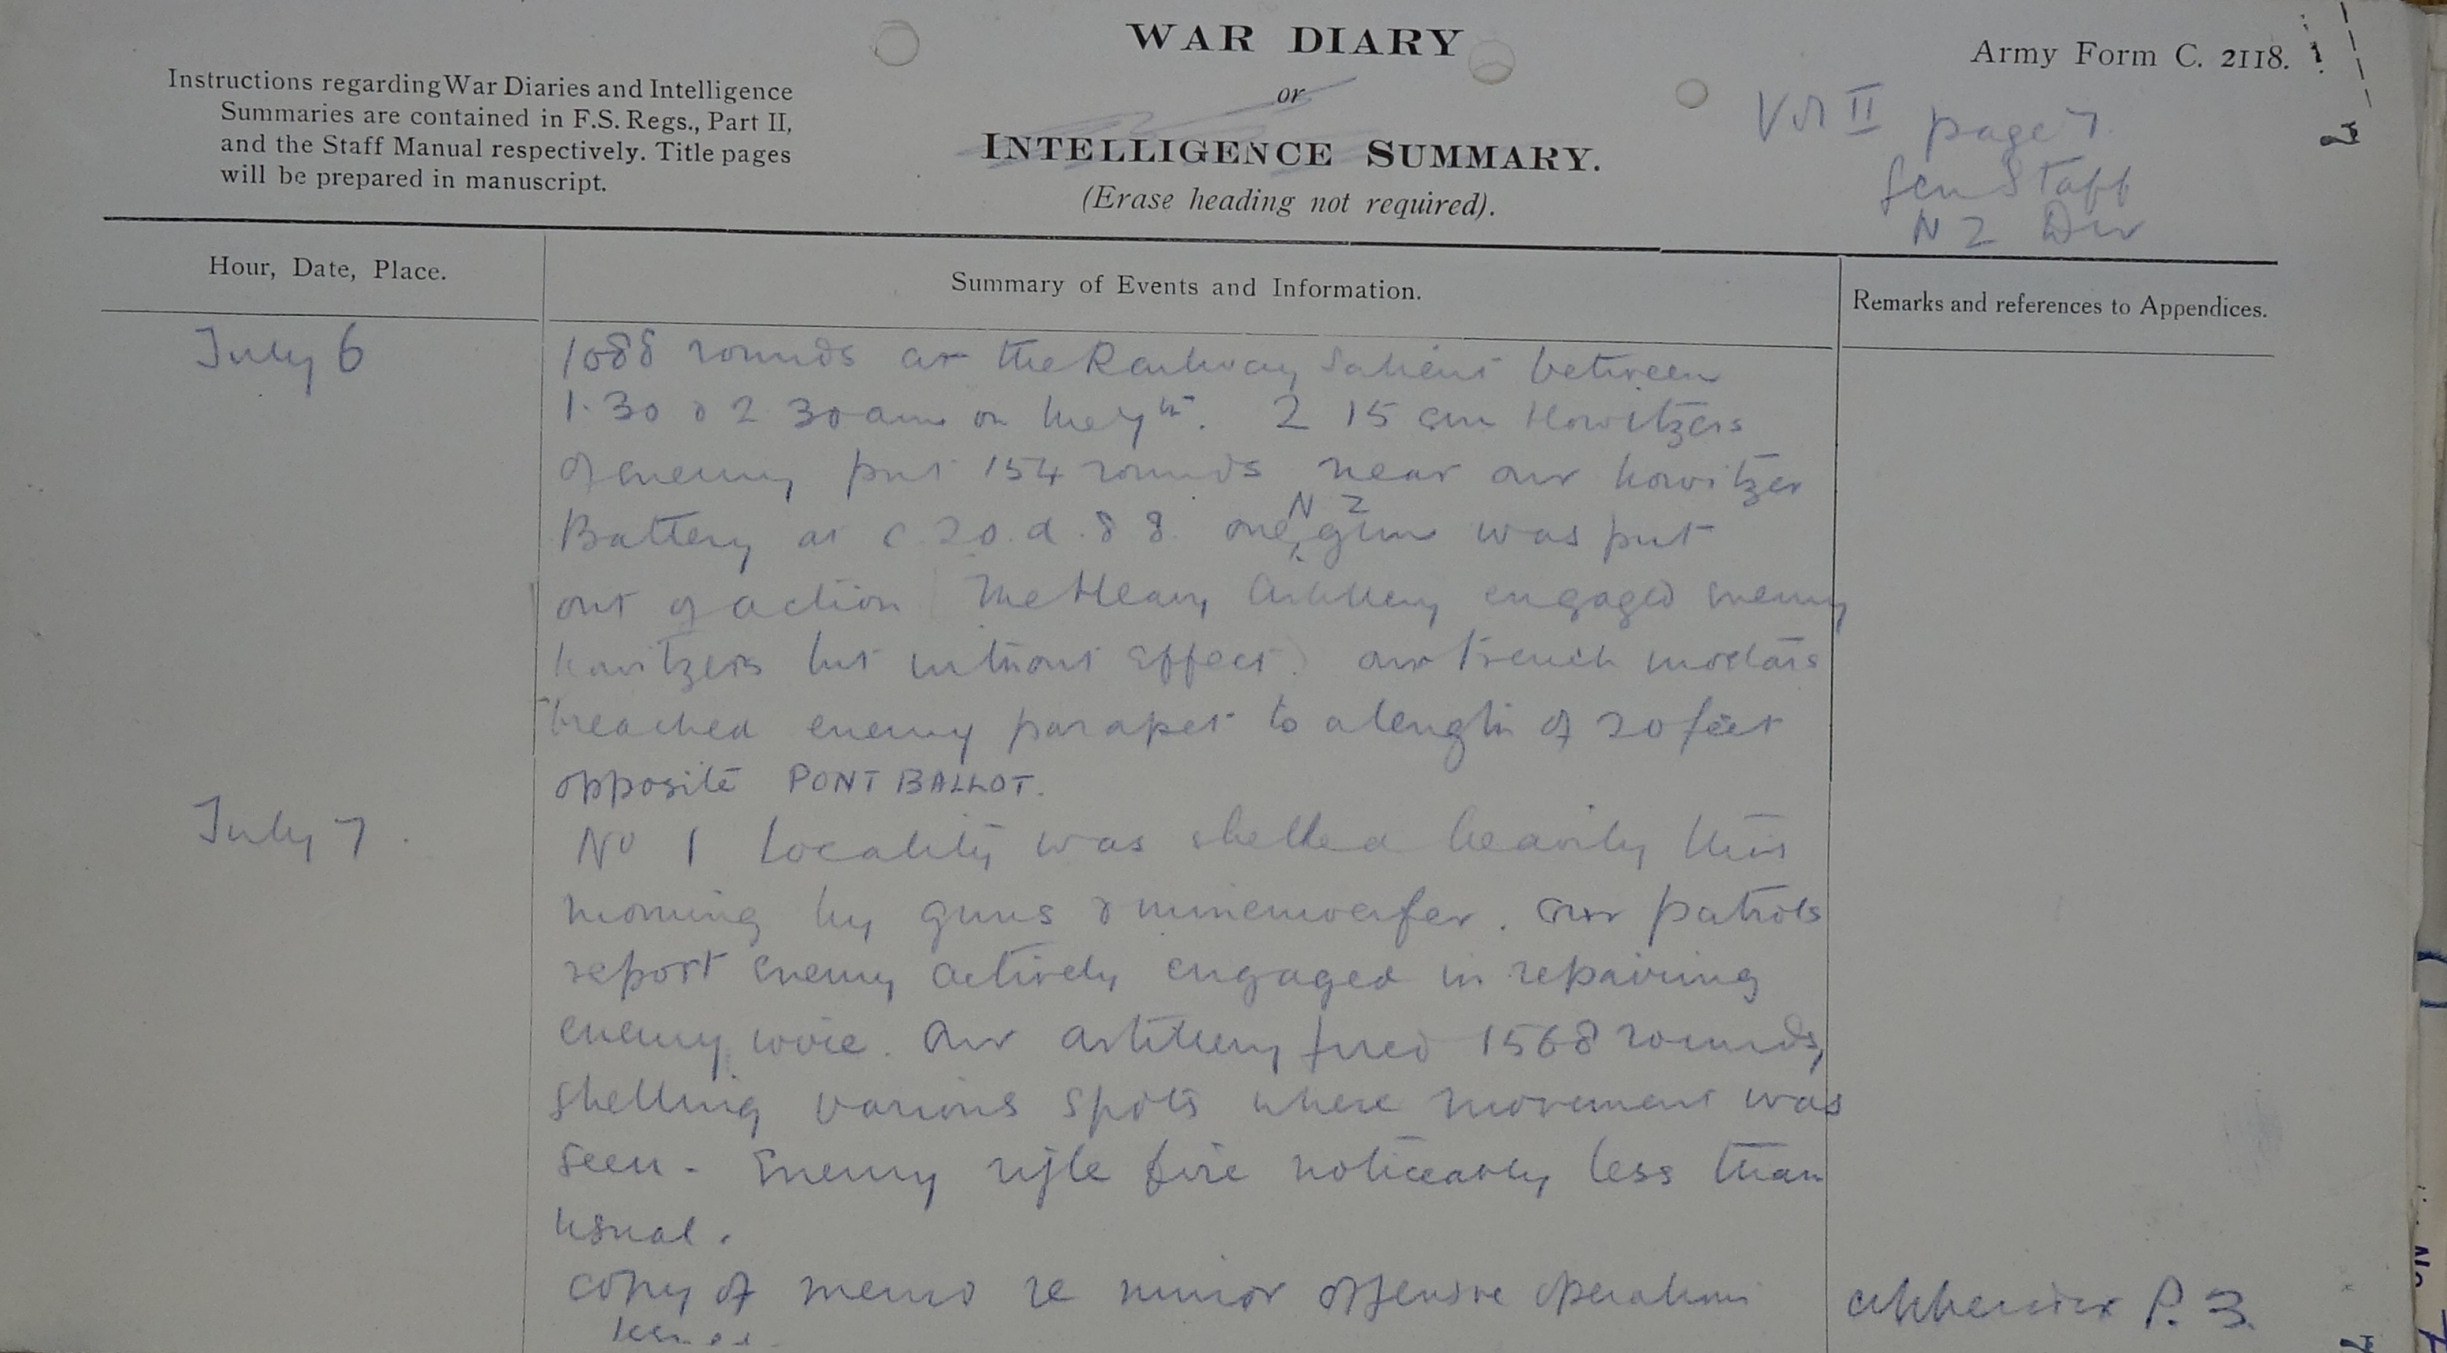 WAR DIARY
or
INTELLIGENCE SUMMARY.
(Erase heading not required).
Army Form C. 2118.
Instructions regarding War Diaries and Intelligence
Summaries are contained in F.S. Regs., Part II,
and the Staff Manual respectively. Title pages
will be prepared in manuscript.
Vol II page 7.
Gen Staff
N Z Div
Hour, Date, Place.
Summary of Events and Information.
Remarks and references to Appendices.
July 6
1088 rounds at the Railway Salient between
1.30 & 2 30 am on the 7th. 2 15 cm Howitzers
of enemy put 154 rounds near our howitzer
Battery at C 20.d.88. one N Z gun was put
out of action (The Heavy Artillery engaged enemy
howitzers but without effect) our trench mortars
breached enemy parapet to a length of 20 feet
opposite PONT BALLOT.
July 7.
No 1 Locality was shelled heavily this
morning by guns & minenwerfer. our patrols
report enemy actively engaged in repairing
enemy wire. Our artillery fired 1568 rounds,
shelling various spots where movement was
seen - Enemy rifle fire noticeably less than
usual.
Copy of memo re minor offensive operations
issued
Appendix P. 3.